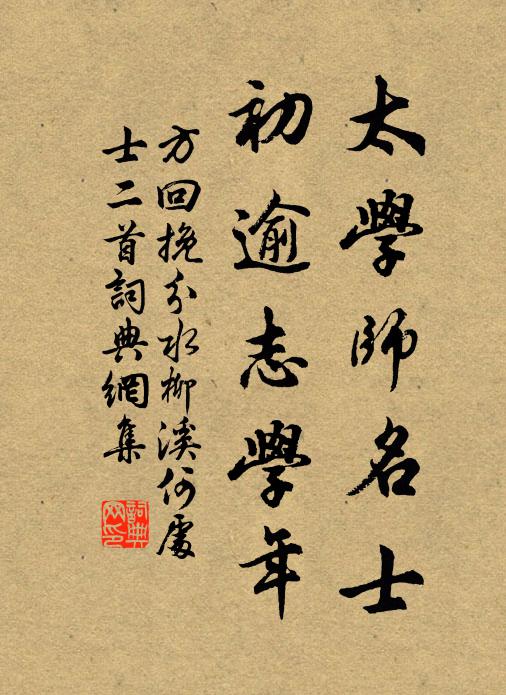 太學師名士
初逾志學年
方回挽分水柳溪何處
士二首詞典網集
詞典
网印